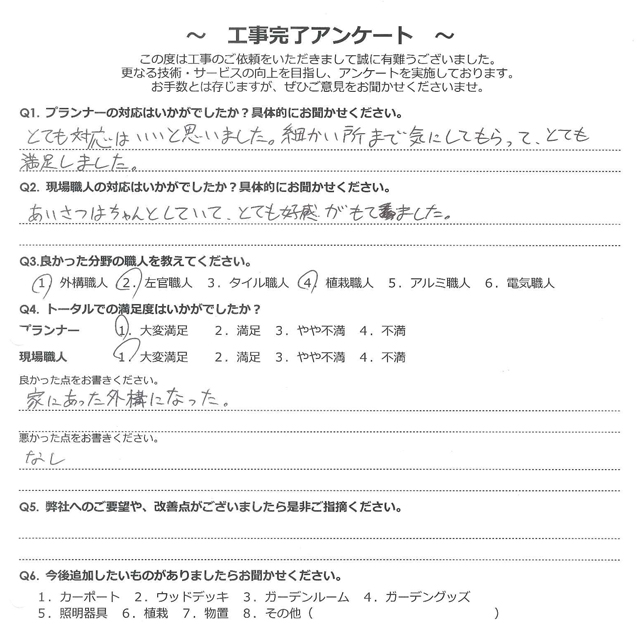 ～ 工事完了アンケート ～
この度は工事のご依頼をいただきまして誠に有難うございました。
更なる技術・サービスの向上を目指し、アンケートを実施しております。
お手数とは存じますが、ぜひご意見をお聞かせくださいませ。
Q1. プランナーの対応はいかがでしたか？具体的にお聞かせください。
とても対応はいいと思いました。細かい所まで気にしてもらって、とても
満足しました。
Q2. 現場職人の対応はいかがでしたか？具体的にお聞かせください。
あいさつはちゃんとしていて、とても好感がもてました。
Q3.良かった分野の職人を教えてください。
1 外構職人 2. 左官職人 3. タイル職人 4. 植栽職人 5. アルミ職人 6. 電気職人
Q4. トータルでの満足度はいかがでしたか？
プランナー 1. 大変満足 2. 満足 3. やや不満 4. 不満
現場職人 1. 大変満足 2. 満足 3. やや不満 4. 不満
良かった点をお書きください。
家にあった外構になった。
悪かった点をお書きください。
なし
Q5. 弊社へのご要望や、改善点がございましたら是非ご指摘ください。
Q6. 今後追加したいものがありましたらお聞かせください。
1. カーポート 2. ウッドデッキ 3. ガーデンルーム 4. ガーデングッズ
5. 照明器具 6. 植栽 7. 物置 8. その他（ ）